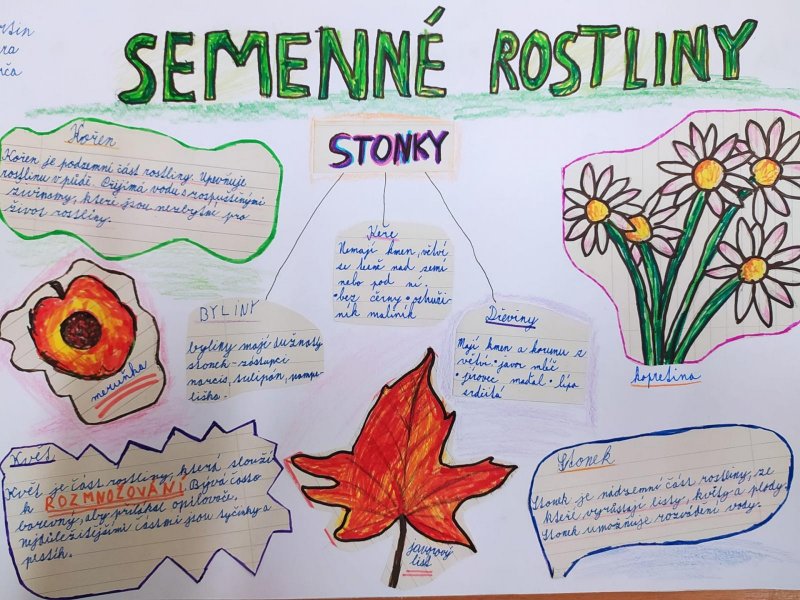 SEMENNÉ ROSTLINY
Kořen
Kořen je podzemní část rostliny. Upevňuje
rostlinu v půdě. Přijímá vodu s rozpuštěnými
živinamy, které jsou nezbytné pro
život rostliny.
STONKY
Keře
Nemají kmen, větví
se těsně nad zemí
nebo pod ní,
• bez černý • ostruži-
ník maliník
BYLINY
byliny mají dužnatý
stonek - zástupci
narcis, tulipán, pampe-
liška.
Dřeviny
Mají kmen a korunu s
větví • javor mléč
• jírovec maďal • lípa
srdčitá
meruňka
kopretina
Květ
Květ je část rostliny, která slouží
k ROZMNOŽOVÁNÍ. Bývá často
barevný, aby přilákal opilovače.
Nejdůležitějšími částmi jsou tyčinky a
pestík.
javorový
list
Stonek
Stonek je nádzemní část rostliny, ze
kteří vyrůstají listy, květy a plody.
Stonek umožňuje rozvádění vody.